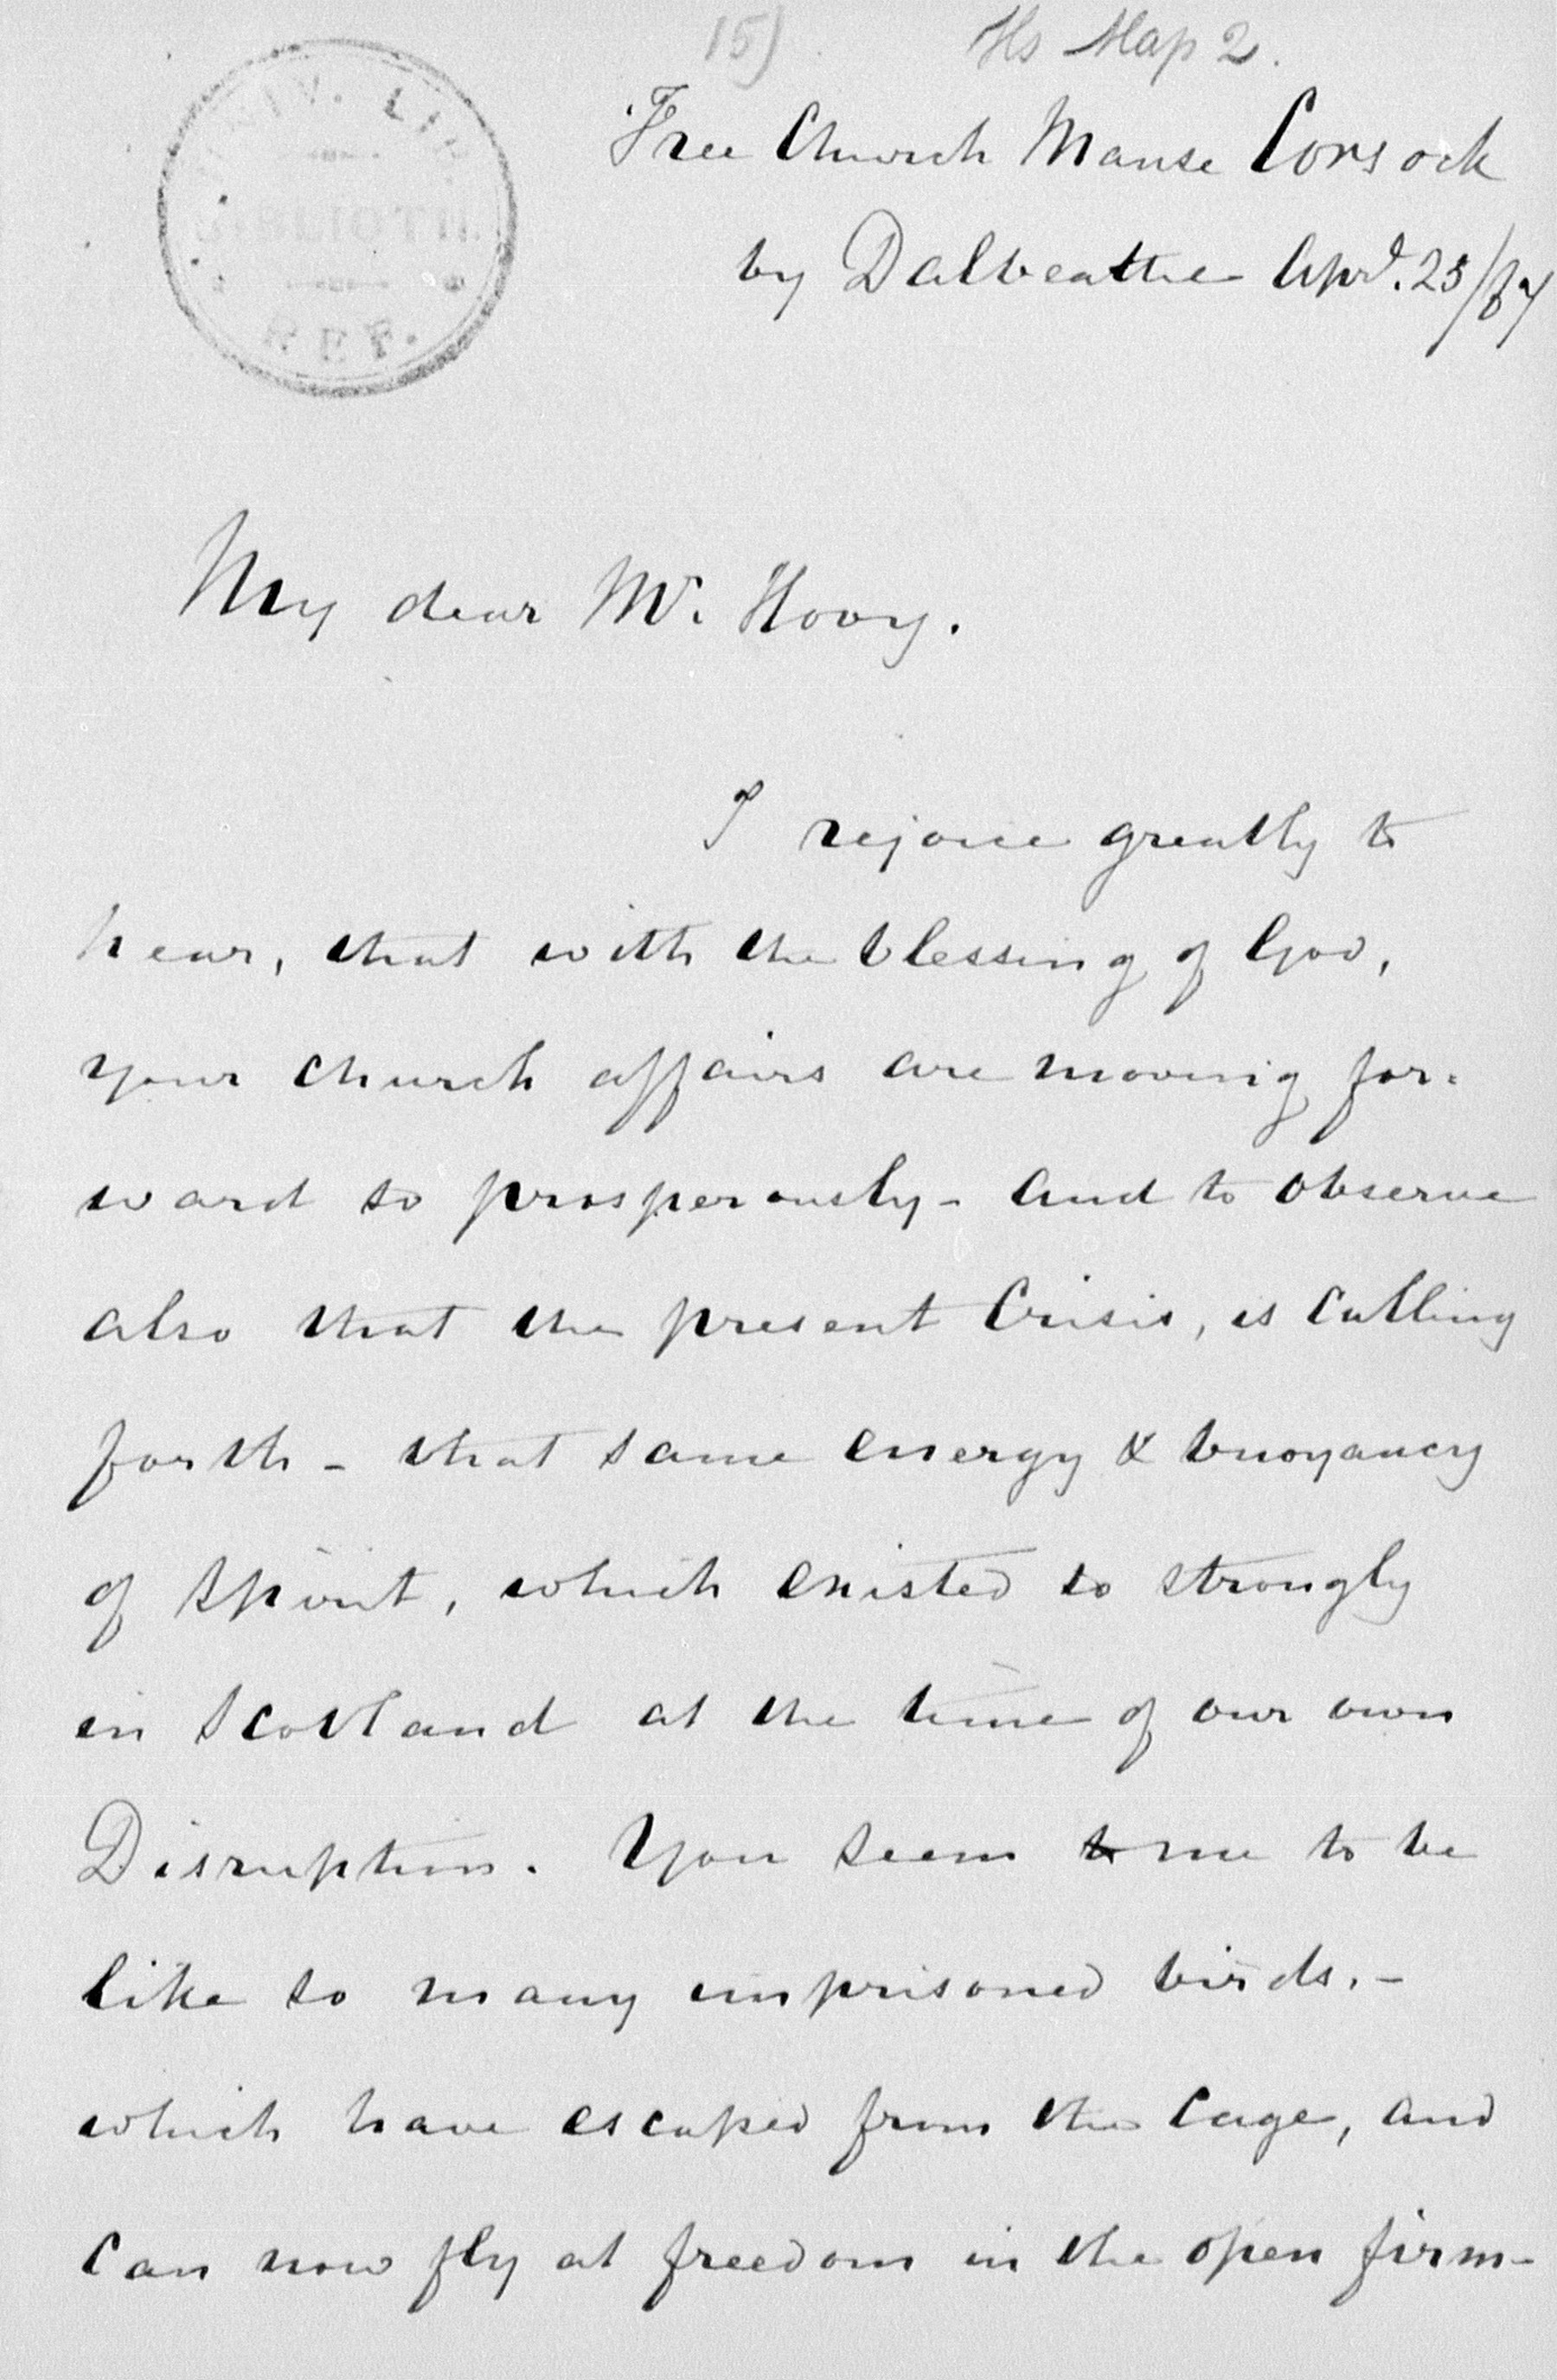 15) Hs Map 2.
Free Church Manse Corsock
by Dalbeattie Apr. 25/87
My dear Mr. Hovy.
I rejoice greatly to
hear, that with the blessing of God,
your church affairs are moving for=
ward so prosperously - and to observe
also that the present Crisis, is calling
forth - that same energy & buoyancy
of spirit, which existed so strongly
in Scotland at the time of our own
Disruption. You seem to me to be
like so many imprisoned birds. -
which have escaped from the cage, and
can now fly at freedom in the open firm-